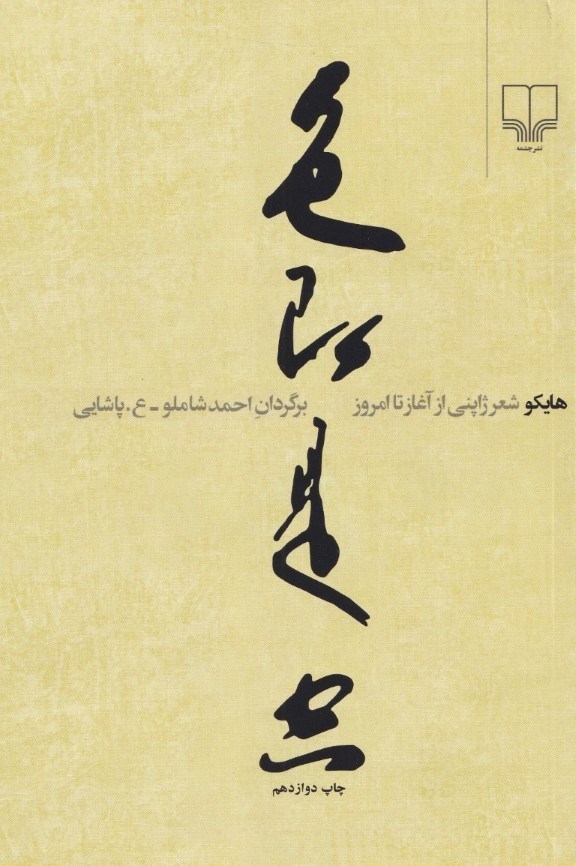 نشرچشمه
色
即
是
空
هایکو شعر ژاپنی از آغاز تا امروز برگردانِ احمد شاملو - ع. پاشایی
چاپ دوازدهم